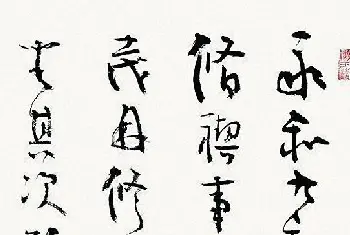 永和九
脩禊事
茂林修
坐其次